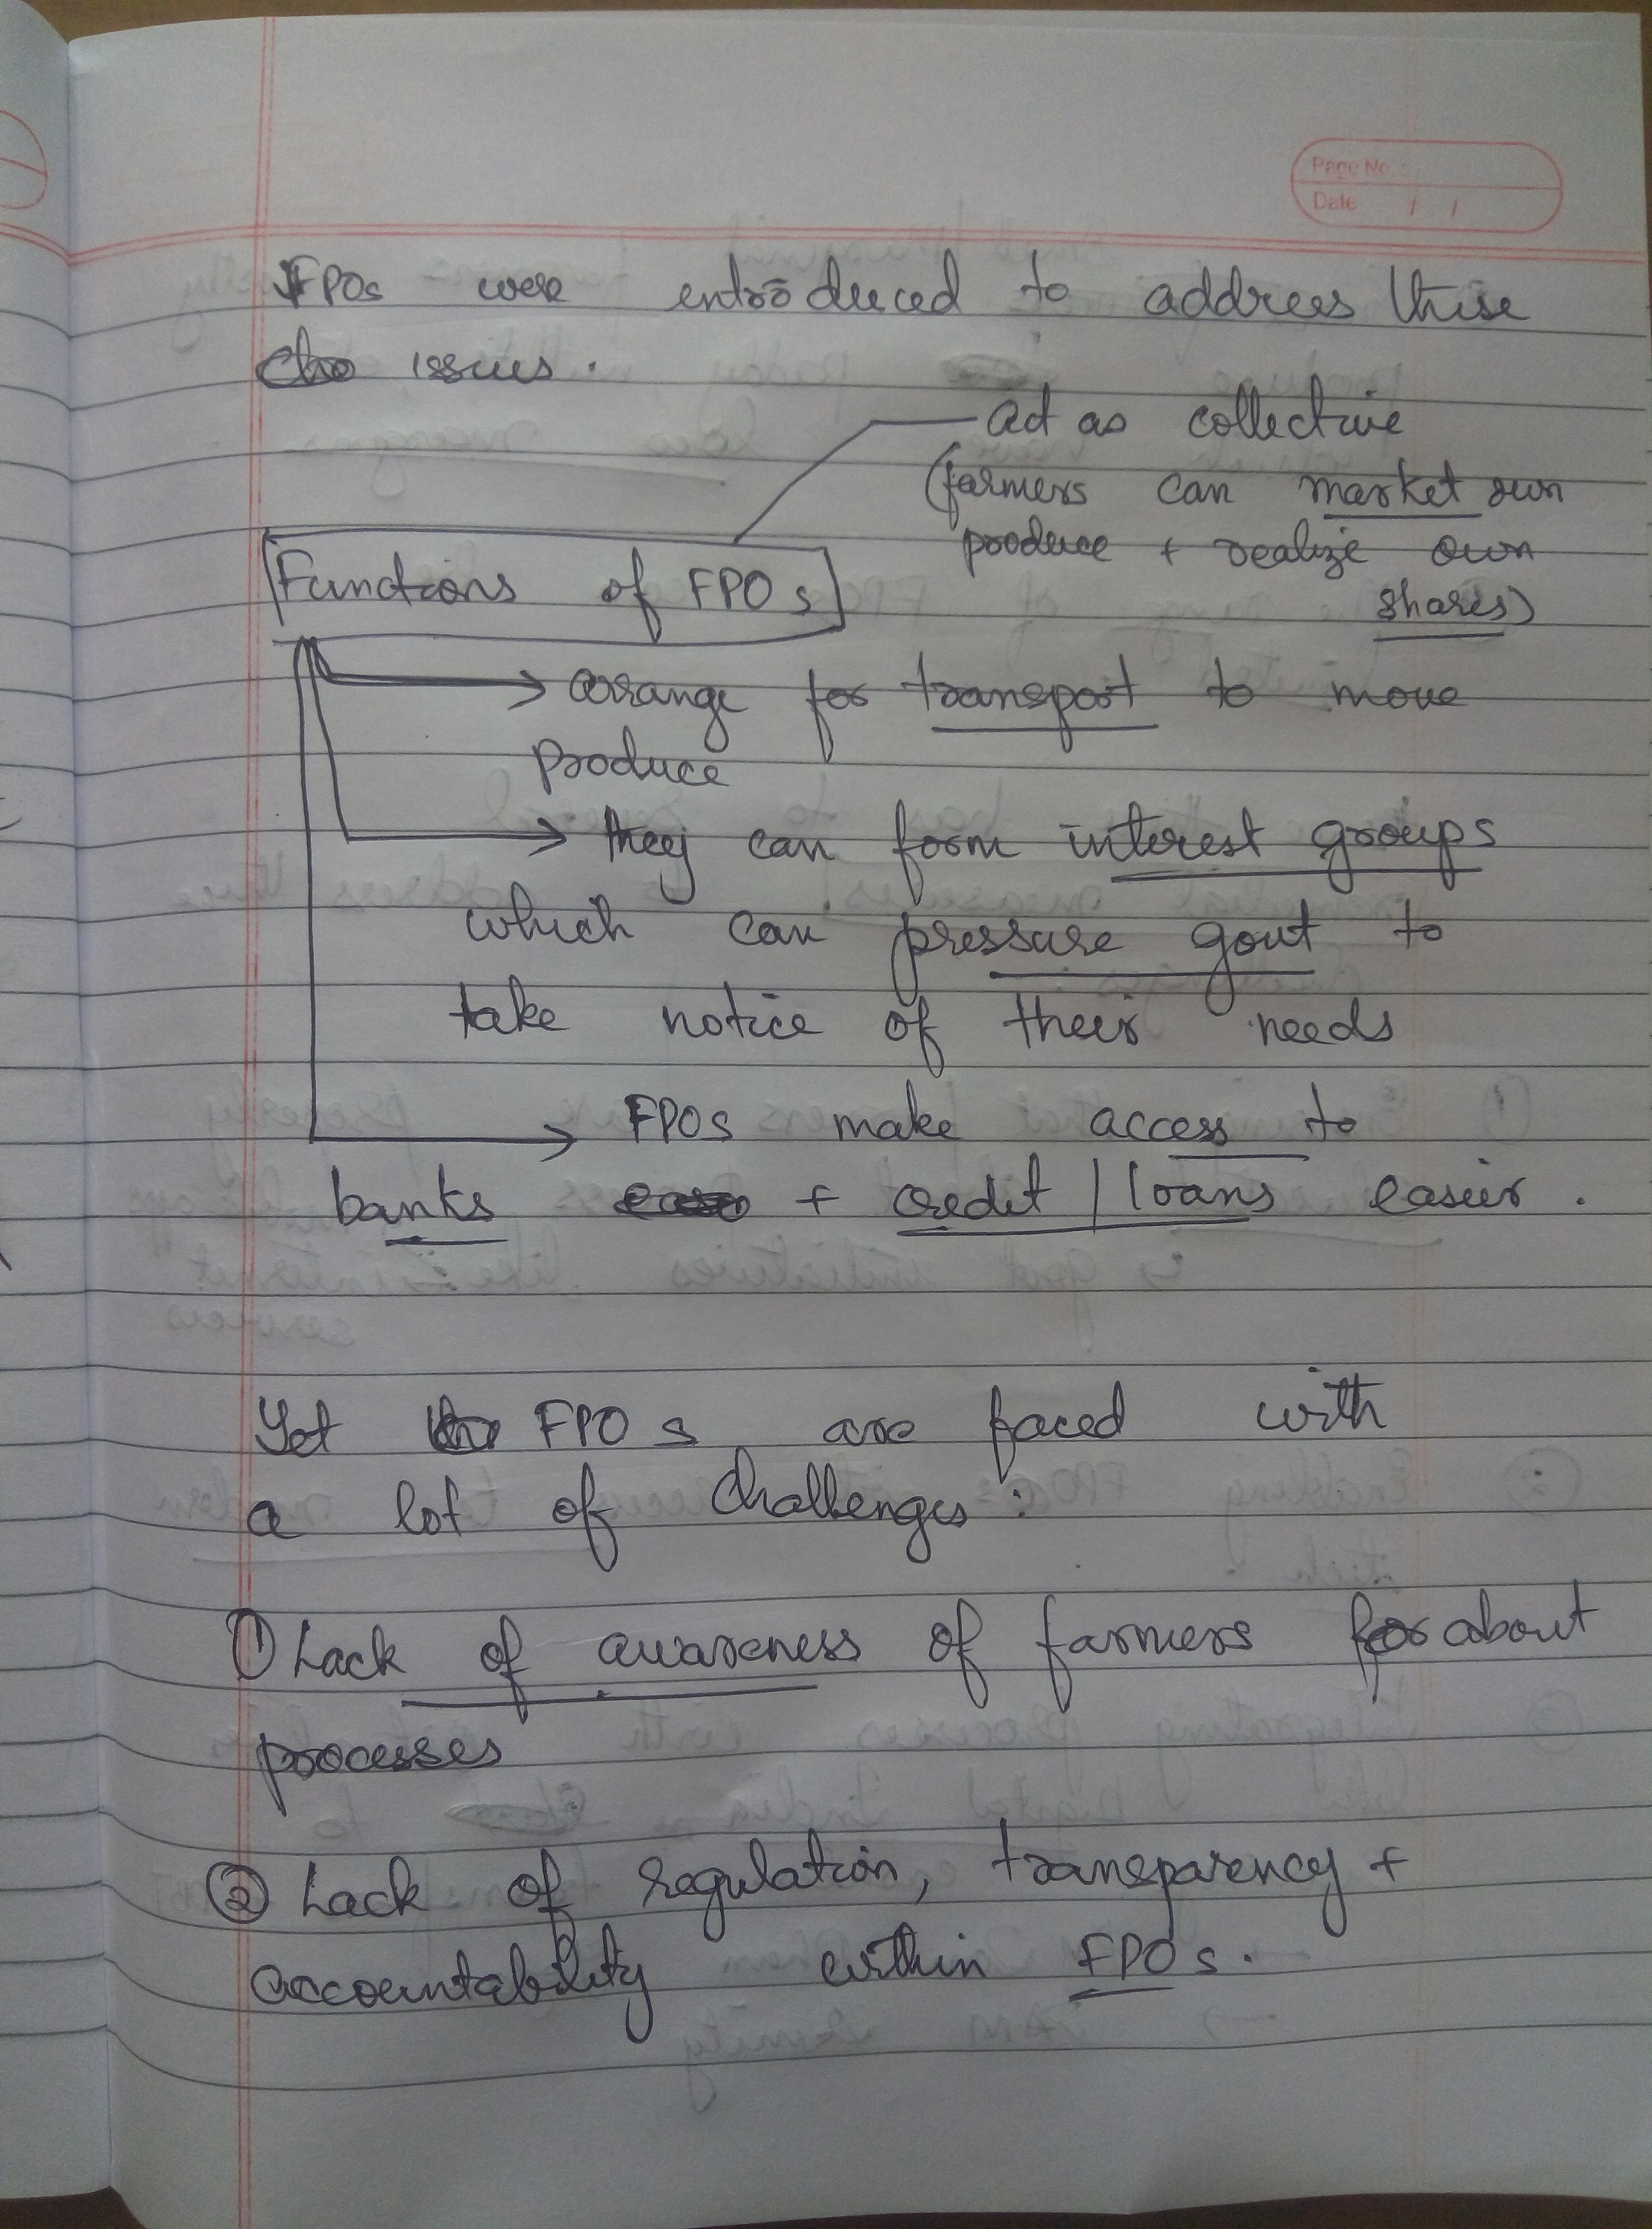 Page No. :
Date / /
FPOs were introduced to address these
issues.
act as collective
(farmers can market own
produce + realize own
shares)
Functions of FPOs
→ arrange for transport to move
produce
→ they can form interest groups
which can pressure govt to
take notice of their needs
→ FPOs make access to
banks + credit / loans easier.
Yet FPOs are faced with
a lot of challenges:
① Lack of awareness of farmers about
processes
② Lack of regulation, transparency +
accountability within FPOs.